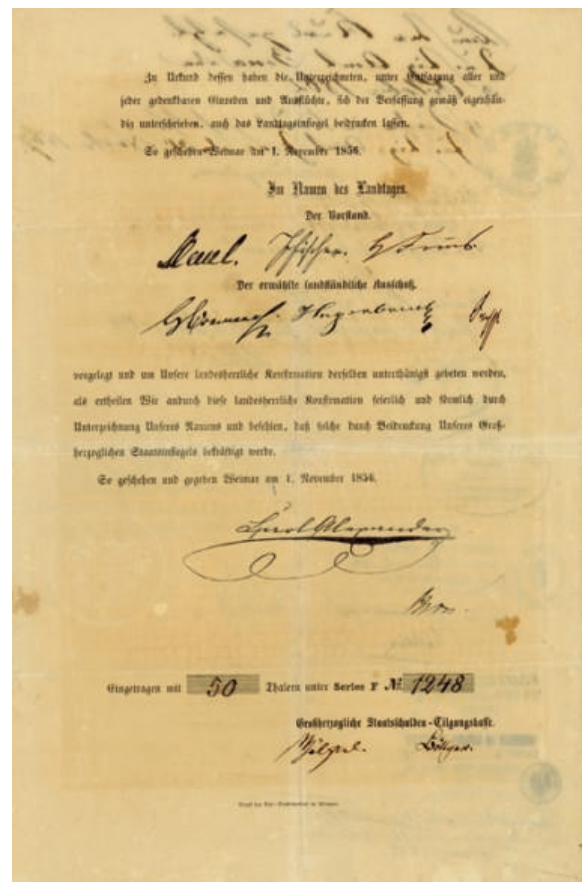 In Urkund dessen haben die Unterzeichneten, unter Entsagung aller und
jeder gedenkbaren Einreden und Ausflüchte, sich der Verfassung gemäß eigenhän-
dig unterschrieben, auch das Landtagsinsiegel beidrucken lassen.
So geschehen Weimar am 1. November 1856.
Im Namen des Landtages.
Der Vorstand.
Fischer.
Der erwählte landständische Ausschuß.
vorgelegt und um Unsere landesherrliche Konfirmation derselben unterthänigst gebeten worden,
als ertheilen Wir andurch diese landesherrliche Konfirmation feierlich und förmlich durch
Unterzeichnung Unseres Namens und befehlen, daß solche durch Beidruckung Unseres Groß-
herzoglichen Staatsinsiegels bekräftigt werde.
So geschehen und gegeben Weimar am 1. November 1856.
Carl Alexander
Eingetragen mit 50 Thalern unter Series F № 1248
Großherzogliche Staatsschulden-Tilgungskasse.
Böttger.